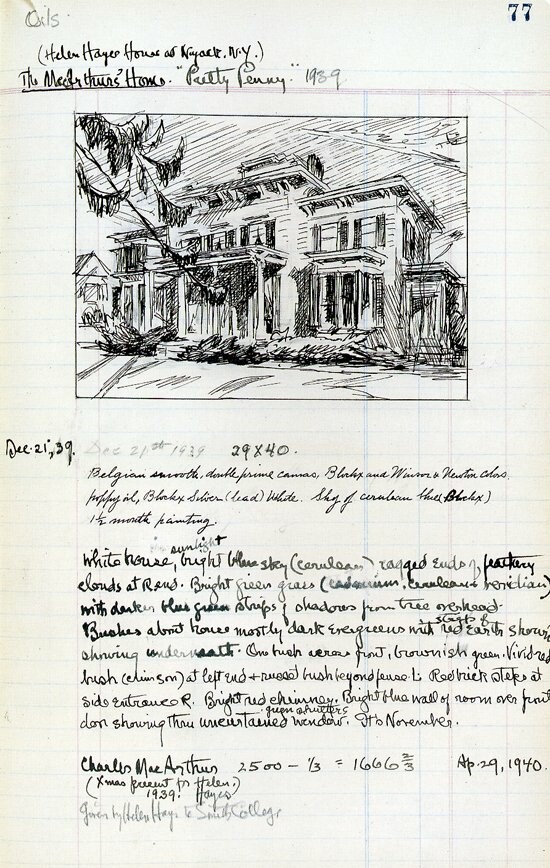 Oils
77
(Helen Hayes House at Nyack. N.Y.)
The MacArthurs' Home. "Pretty Penny." 1939
Dec. 21, 39. Dec 21st 1939 29 X 40.
Belgian smooth, double prime canvas, Blockx and Winsor & Newton colors.
poppy oil, Blockx Silver (lead) White. Sky of cerulean blue (Blockx)
1½ month painting.
in sunlight
White house, bright blue sky (cerulean) ragged ends of feathery
clouds at R end. Bright green grass (cadmium, cerulean & veridian)
with darker blue green strips of shadows from tree overhead.
strips of
Bushes about house mostly dark evergreens with red earth shown
showing underneath. One bush across front, brownish green. Vivid red
bush (crimson) at left end + russet bush beyond fence L. Red brick steps at
side entrance R. Bright red chimney. Bright blue wall of room over front
green shutters
door showing thru uncurtained window. It's November.
Charles MacArthur 2500 - ⅓ = 1666 ⅔ Ap. 29, 1940.
(Xmas present to Helen
1939. Hayes)
Given by Helen Hayes to Smith College